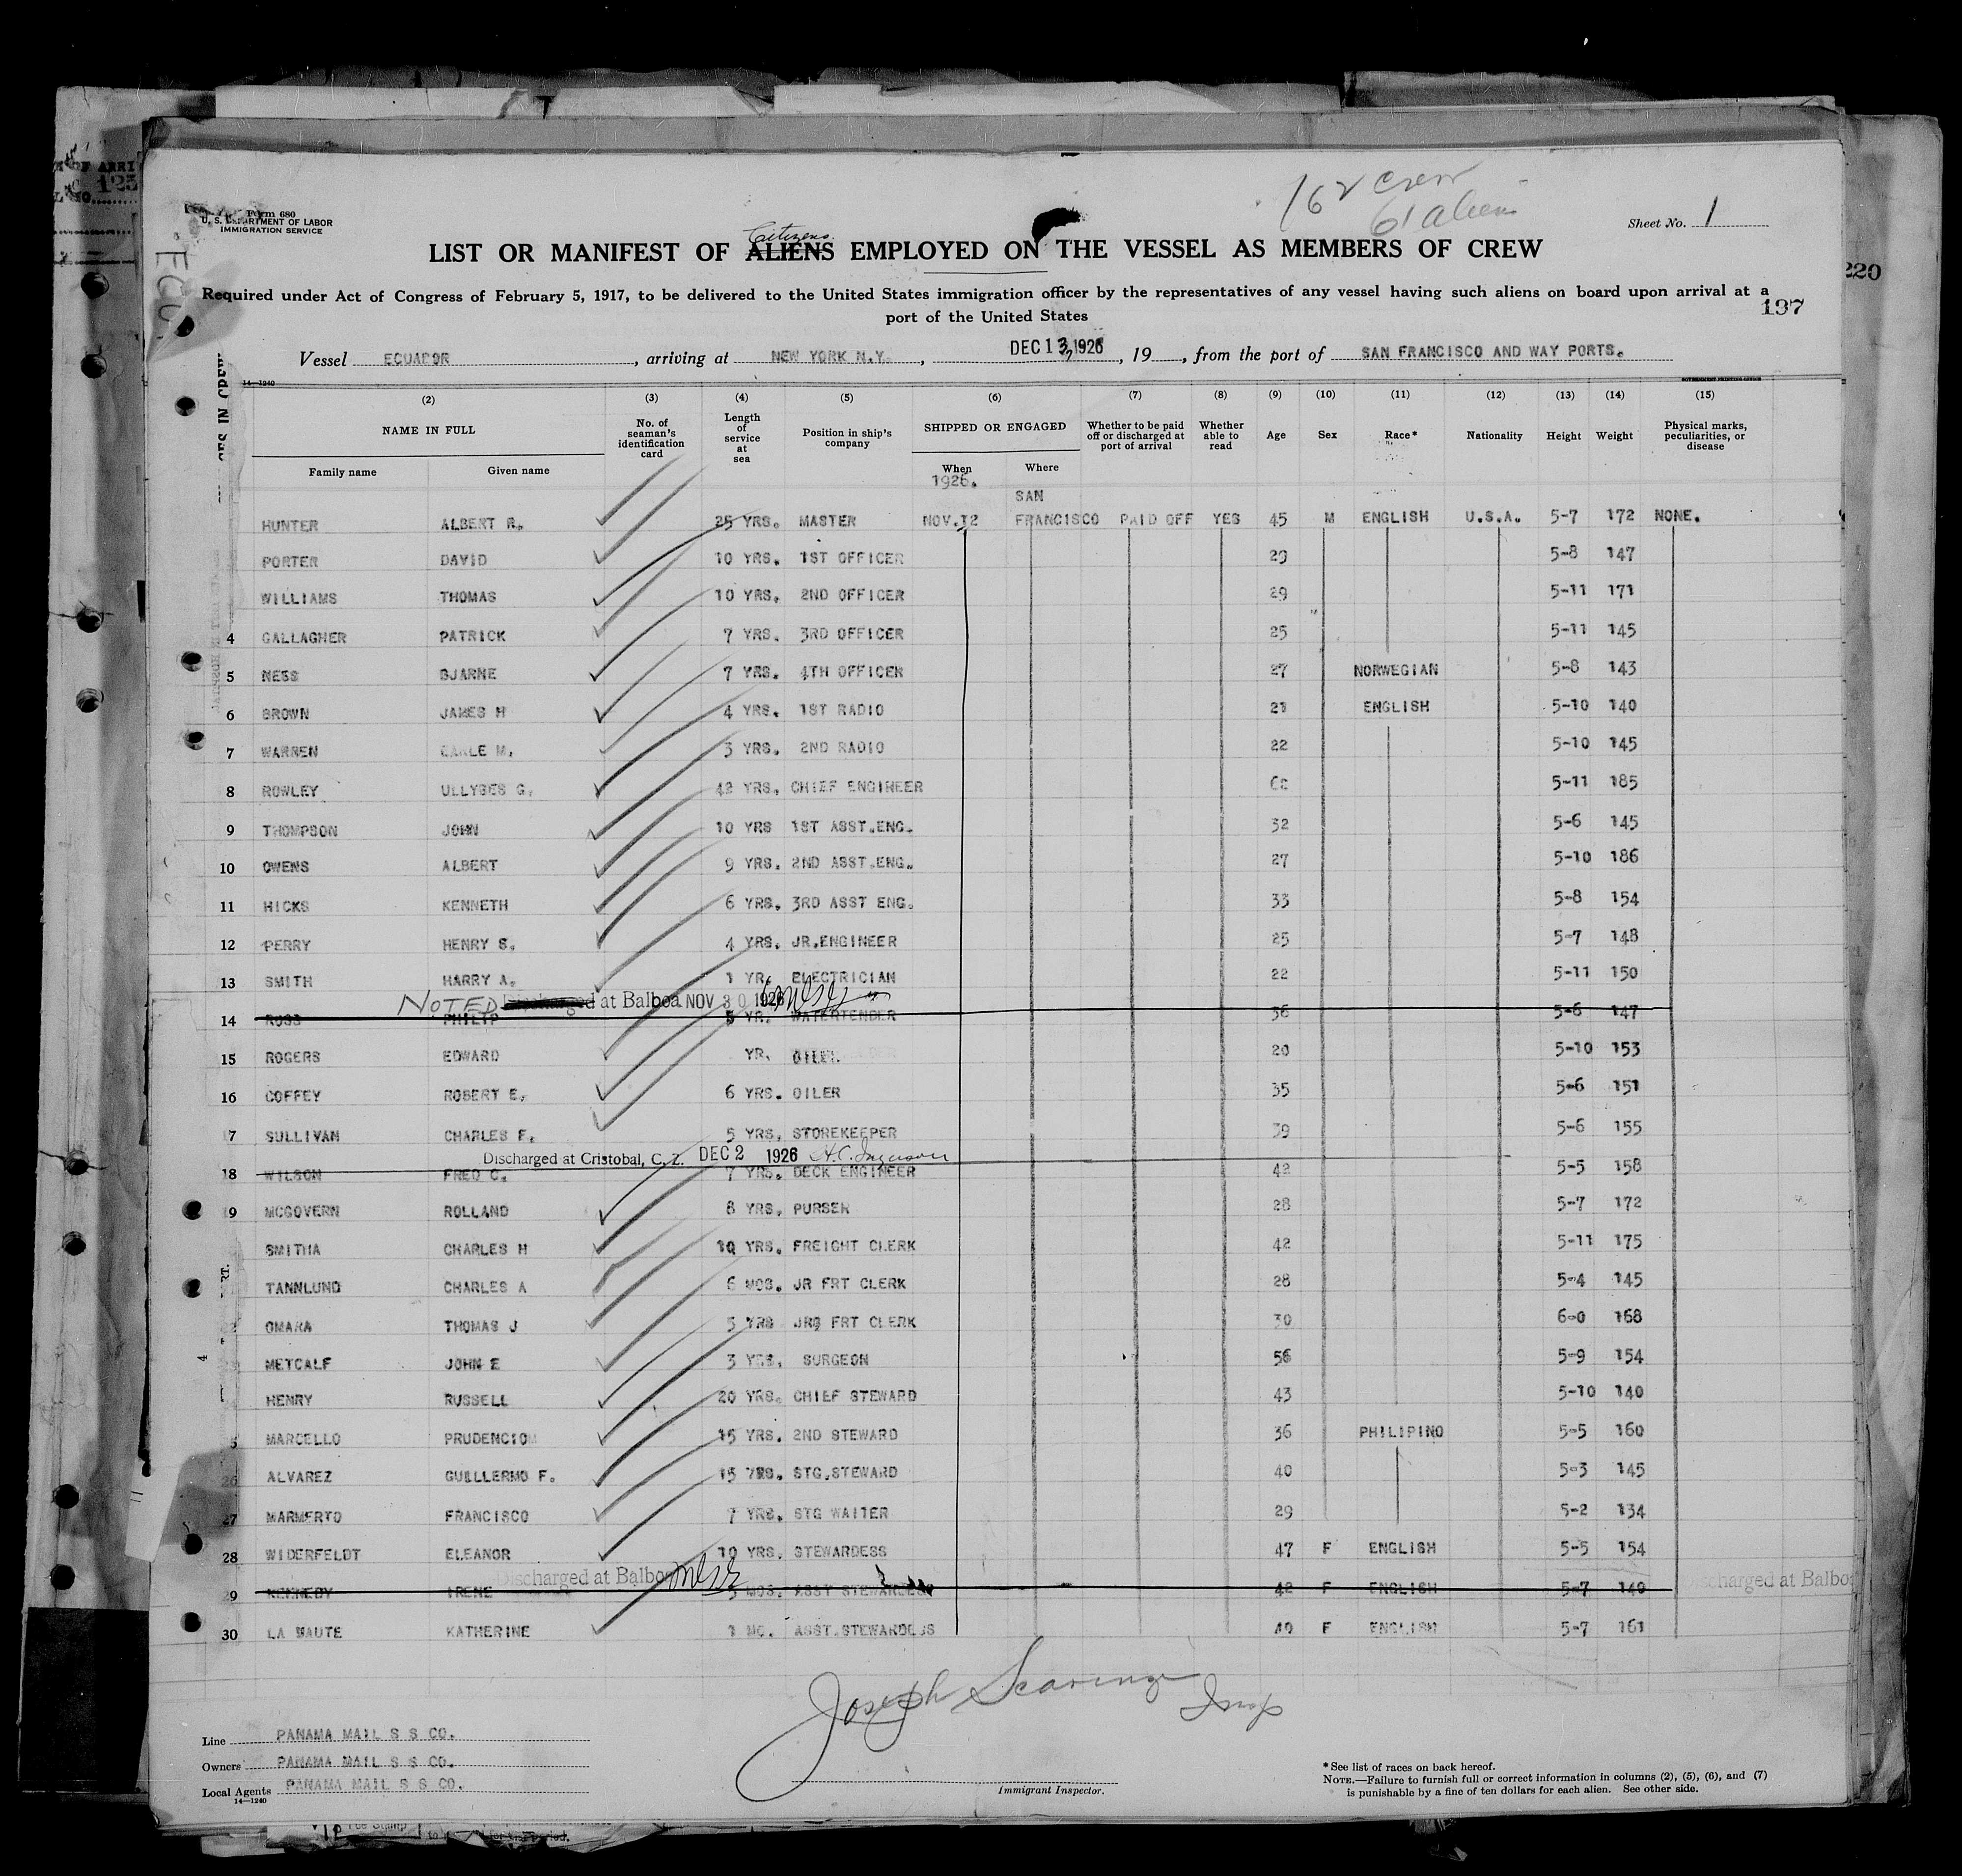 162 crew
61 aliens
Form 680
U. S. DEPARTMENT OF LABOR
IMMIGRATION SERVICE
Sheet No. 1
Citizens
LIST OR MANIFEST OF ALIENS EMPLOYED ON THE VESSEL AS MEMBERS OF CREW
Required under Act of Congress of February 5, 1917, to be delivered to the United States immigration officer by the representatives of any vessel having such aliens on board upon arrival at a
port of the United States
220
137
Vessel ECUADOR, arriving at NEW YORK N.Y., DEC 13 1926, 19, from the port of SAN FRANCISCO AND WAY PORTS.
14—1240
GOVERNMENT PRINTING OFFICE
(2) (3) (4) (5) (6) (7) (8) (9) (10) (11) (12) (13) (14) (15)
NAME IN FULL No. of seaman's identification card Length of service at sea Position in ship's company SHIPPED OR ENGAGED Whether to be paid off or discharged at port of arrival Whether able to read Age Sex Race* Nationality Height Weight Physical marks, peculiarities, or disease
Family name Given name When Where
1926.
SAN
HUNTER ALBERT R. 25 YRS. MASTER NOV.12 FRANCISCO PAID OFF YES 45 M ENGLISH U.S.A. 5-7 172 NONE.
PORTER DAVID 10 YRS. 1ST OFFICER 29 5-8 147
WILLIAMS THOMAS 10 YRS. 2ND OFFICER 29 5-11 171
4 GALLAGHER PATRICK 7 YRS. 3RD OFFICER 25 5-11 145
5 NESS BJARNE 7 YRS. 4TH OFFICER 27 NORWEGIAN 5-8 143
6 BROWN JAMES H 4 YRS. 1ST RADIO 21 ENGLISH 5-10 140
7 WARREN EARLE M. 3 YRS. 2ND RADIO 22 5-10 145
8 ROWLEY ULLYSES G. 42 YRS. CHIEF ENGINEER 5-11 185
9 THOMPSON JOHN 10 YRS 1ST ASST.ENG. 32 5-6 145
10 OWENS ALBERT 9 YRS. 2ND ASST.ENG. 27 5-10 186
11 HICKS KENNETH 6 YRS. 3RD ASST ENG. 33 5-8 154
12 PERRY HENRY S. 4 YRS. JR.ENGINEER 25 5-7 148
13 SMITH HARRY A. 1 YR. ELECTRICIAN 22 5-11 150
NOTED Discharged at Balboa NOV 30 1926
14 ROSS PHILIP 5 YR. WATERTENDER 36 5-6 147
15 ROGERS EDWARD YR. OILER 20 5-10 153
16 COFFEY ROBERT E. 6 YRS. OILER 35 5-6 151
17 SULLIVAN CHARLES F. 5 YRS. STOREKEEPER 39 5-6 155
Discharged at Cristobal, C. Z. DEC 2 1926
18 WILSON FRED C. 7 YRS. DECK ENGINEER 42 5-5 158
19 MCGOVERN ROLLAND 8 YRS. PURSER 28 5-7 172
SMITHA CHARLES H 10 YRS. FREIGHT CLERK 42 5-11 175
TANNLUND CHARLES A 6 MOS. JR FRT CLERK 28 5-4 145
OMARA THOMAS J 5 YRS JR FRT CLERK 30 6-0 168
METCALF JOHN E 3 YRS. SURGEON 56 5-9 154
HENRY RUSSELL 20 YRS. CHIEF STEWARD 43 5-10 140
5 MARCELLO PRUDENCIO 15 YRS. 2ND STEWARD 36 PHILIPINO 5-5 160
26 ALVAREZ GUILLERMO F. 15 YRS. STG.STEWARD 40 5-3 145
27 MARMERTO FRANCISCO 7 YRS. STG WAITER 29 5-2 134
28 WIDERFELDT ELEANOR 10 YRS. STEWARDESS 47 F ENGLISH 5-5 154
Discharged at Balboa Discharged at Balboa
29 KENNEDY IRENE 3 MOS. ASST STEWARDESS 42 F ENGLISH 5-7 140
30 LA HAUTE KATHERINE 1 MO. ASST.STEWARDESS 40 F ENGLISH 5-7 161
Joseph Scaringe Insp
Line PANAMA MAIL S S CO.
Owners PANAMA MAIL S S CO.
Local Agents PANAMA MAIL S S CO.
14—1240
Immigrant Inspector.
*See list of races on back hereof.
NOTE.—Failure to furnish full or correct information in columns (2), (5), (6), and (7)
is punishable by a fine of ten dollars for each alien. See other side.